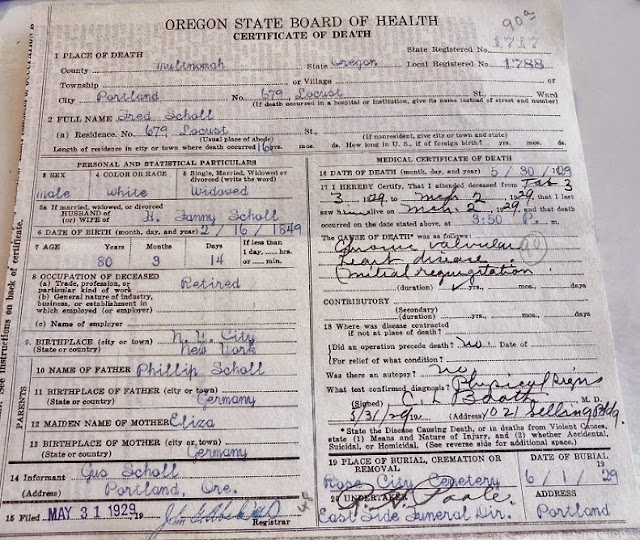 90a
OREGON STATE BOARD OF HEALTH
CERTIFICATE OF DEATH
1 PLACE OF DEATH
State Registered No. 1717
County Multnomah State Oregon Local Registered No. 1788
Township or Village or
City Portland No. 679 Locust St., Ward
(If death occurred in a hospital or institution, give its name instead of street and number)
2 FULL NAME Fred Scholl
(a) Residence. No. 679 Locust St.,
(Usual place of abode) (If nonresident, give city or town and state)
Length of residence in city or town where death occurred 16 yrs. mos. ds. How long in U. S., if of foreign birth? yrs. mos. ds.
PERSONAL AND STATISTICAL PARTICULARS
3 SEX 4 COLOR OR RACE 5 Single, Married, Widowed or Divorced (write the word)
male white Widowed
5a If married, widowed, or divorced
HUSBAND of
(or) WIFE of H. Fanny Scholl
6 DATE OF BIRTH (month, day, and year) 2/16/1849
7 AGE Years Months Days If less than
1 day, hrs.
or min.
80 3 14
8 OCCUPATION OF DECEASED
(a) Trade, profession, or
particular kind of work Retired
(b) General nature of industry,
business, or establishment in
which employed (or employer)
(c) Name of employer
9 BIRTHPLACE (city or town) N. Y. City
(State or country) New York
PARENTS
10 NAME OF FATHER Phillip Scholl
11 BIRTHPLACE OF FATHER (city or town)
(State or country) Germany
12 MAIDEN NAME OF MOTHER Eliza
13 BIRTHPLACE OF MOTHER (city or town)
(State or country) Germany
14 Informant Gus Scholl
(Address) Portland, Ore.
15 Filed MAY 31 1929 19
Registrar
48
MEDICAL CERTIFICATE OF DEATH
16 DATE OF DEATH (month, day, and year) 5/30/ 29
17 I HEREBY Certify, That I attended deceased from Feb 3
3 1929, to 2 1929, that I last
saw h alive on 2 1929, and that death
occurred on the date stated above, at 3:50 P. m.
The CAUSE OF DEATH* was as follows:
Chronic valvular
heart disease
mitral regurgitation
90
(duration) yrs. mos. ds.
CONTRIBUTORY
(Secondary)
(duration) yrs. mos. ds.
18 Where was disease contracted
if not at place of death?
Did an operation precede death? no Date of
For relief of what condition?
Was there an autopsy? no
What test confirmed diagnosis? Physical signs
(Signed) C. L. Booth M. D.
5/31/29 19 (Address) 1021 Selling Bldg.
*State the Disease Causing Death, or in deaths from Violent Causes,
state (1) Means and Nature of Injury, and (2) whether Accidental,
Suicidal, or Homicidal. (See reverse side for additional space.)
19 PLACE OF BURIAL, CREMATION OR REMOVAL DATE OF BURIAL
19
Rose City Cemetery 6/1/29
20 UNDERTAKER ADDRESS
Poole
East Side Funeral Dir. Portland
See instructions on back of certificate.